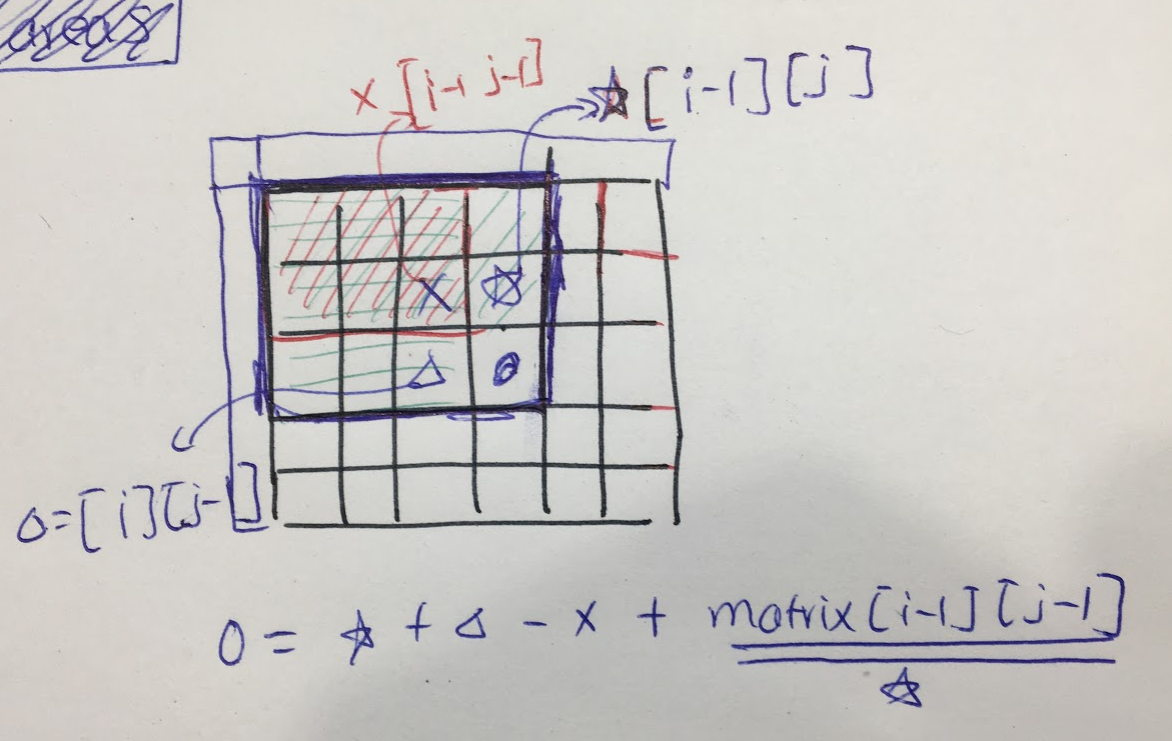 areas
x [i-1 j-1]
☆[i-1][j]
X ☆
△ o
△=[i][j-1]
O = ☆ + △ - x + matrix[i-1][j-1]
☆